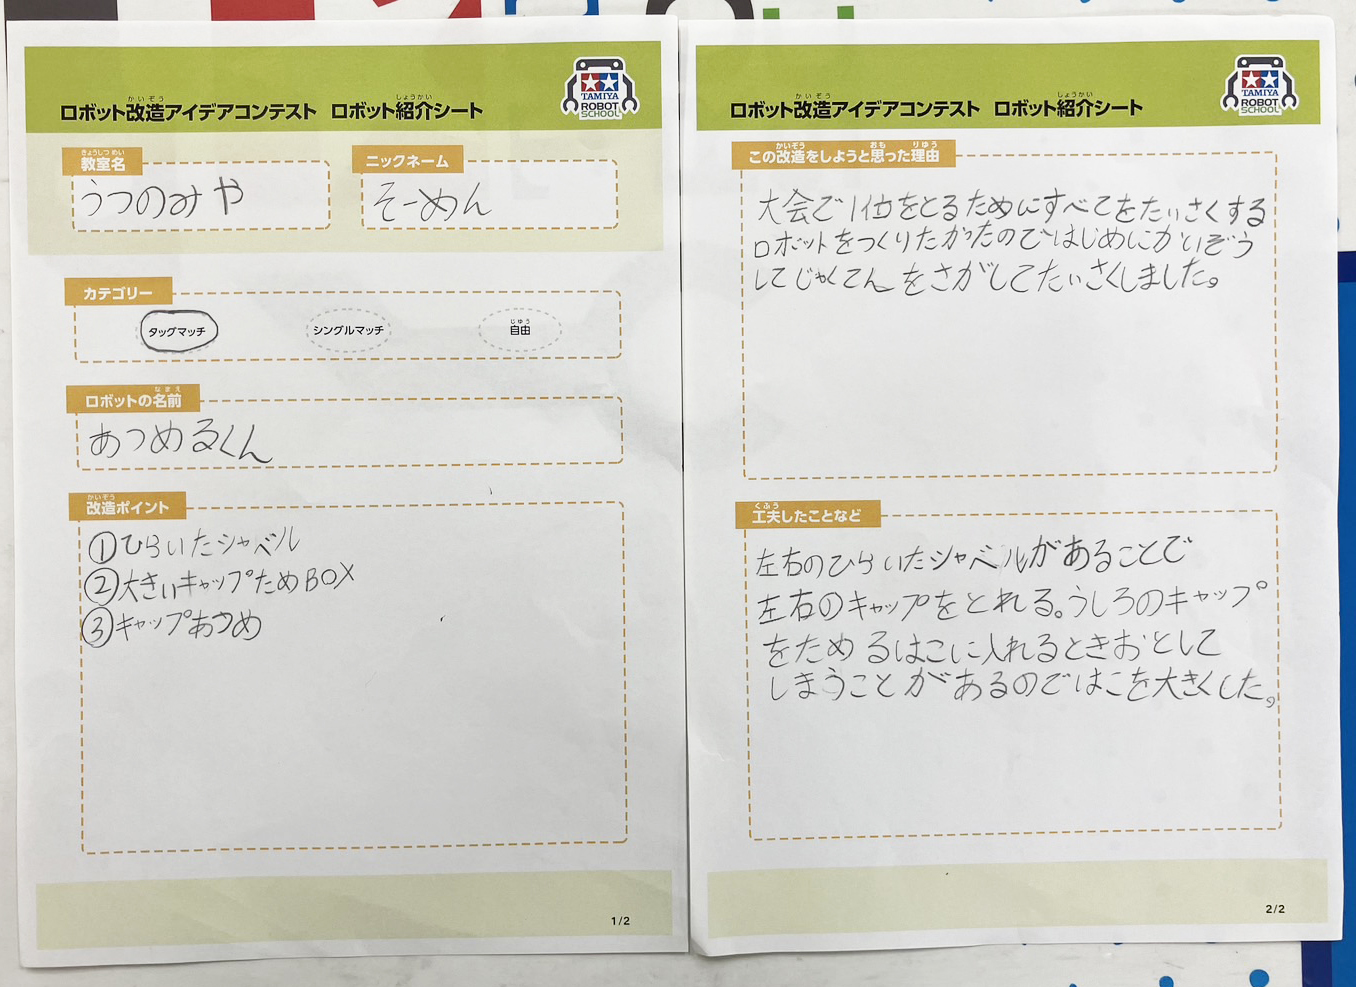 ロボット改造アイデアコンテスト ロボット紹介シート
かいぞう
しょうかい
TAMIYA
ROBOT
SCHOOL
教室名
きょうしつ めい
うつのみや
ニックネーム
そーめん
カテゴリー
タッグマッチ
シングルマッチ
自由
じゆう
ロボットの名前
なまえ
あつめるくん
改造ポイント
かいぞう
①ひらいたシャベル
②大きいキャップためBOX
③キャップあつめ
1/2
ロボット改造アイデアコンテスト ロボット紹介シート
かいぞう
しょうかい
TAMIYA
ROBOT
SCHOOL
この改造をしようと思った理由
かいぞう
おも
りゆう
大会で1位をとるためにすべてをたいさくする
ロボットをつくりたかったのではじめにかいぞう
してじゃくてんをさがしてたいさくしました。
工夫したことなど
くふう
左右のひらいたシャベルがあることで
左右のキャップをとれる。うしろのキャップ
をためるはこに入れるときおとして
しまうことがあるのではこを大きくした。
2/2